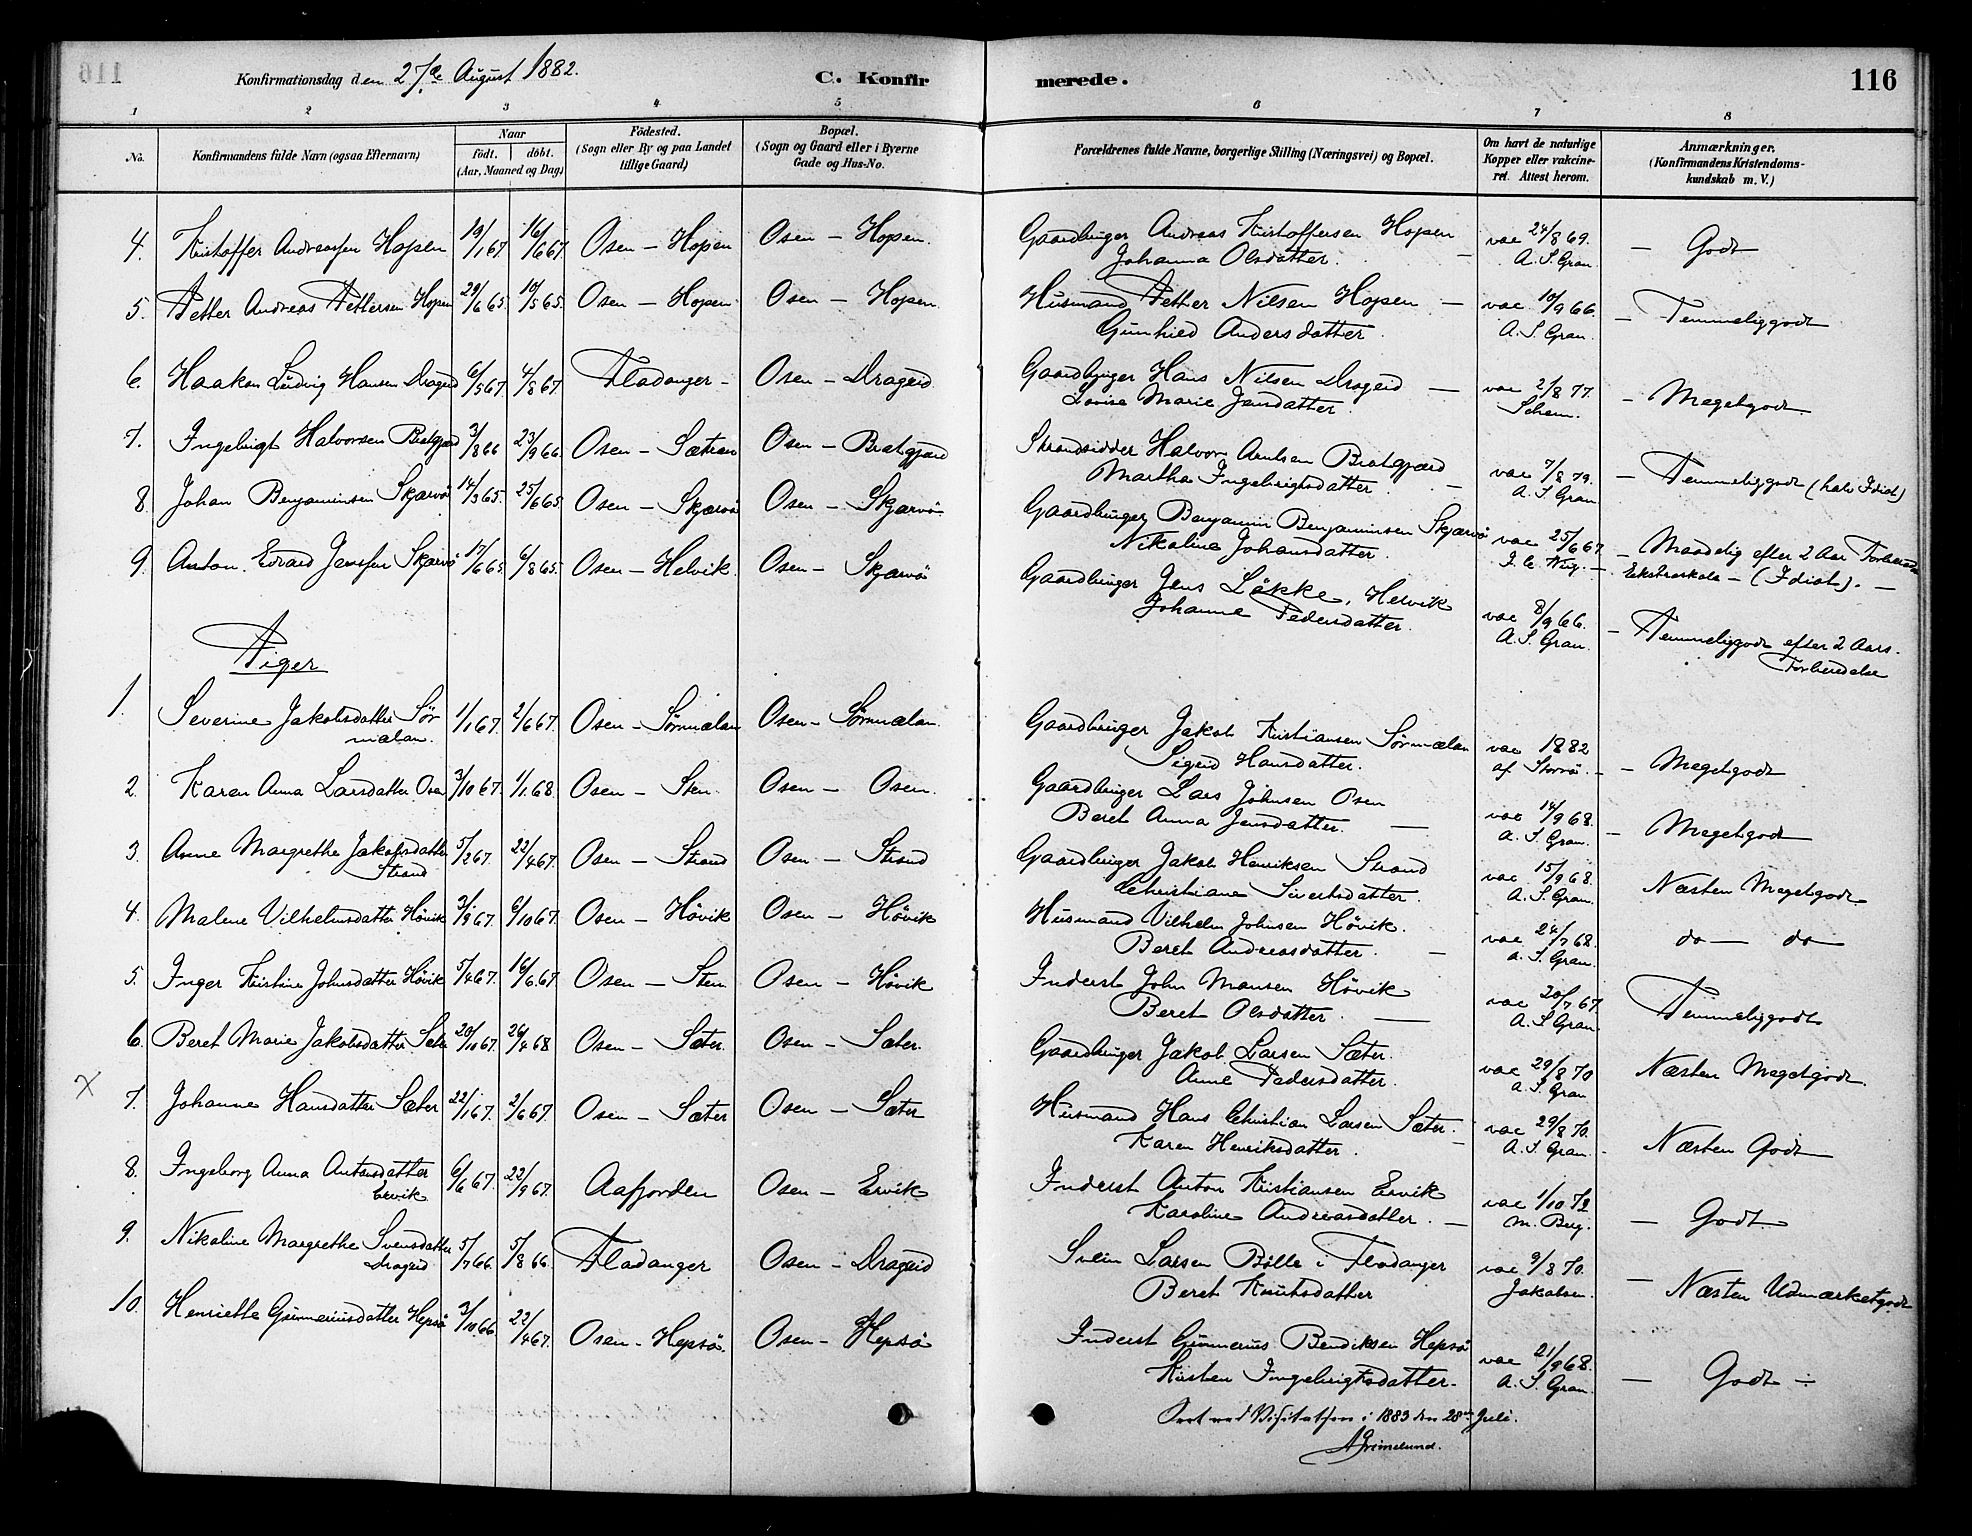 116
Konfirmationsdag den 27de August 1882.
C. Konfirmerede.
116
1 2 3 4 5 6 7 8
No.
Konfirmandens fulde Navn (ogsaa Efternavn)
Naar
födt. döbt.
(Aar, Maaned og Dag)
Födested.
(Sogn eller By og paa Landet
tillige Gaard)
Bopæl.
(Sogn og Gaard eller i Byerne
Gade og Hus-No.
Forældrenes fulde Navne, borgerlige Stilling (Næringsvei) og Bopæl.
Om havt de naturlige
Kopper eller vakcine-
ret. Attest herom.
Anmærkninger.
(Konfirmandens Kristendoms-
kundskab m. V.)
4. Kristoffer Andreassen Hopen 19/1 67. 16/6 67. Osen – Hopen Osen – Hopen. Gaardbruger Andreas Kristoffersen Hopen vac 24/8 69. – Godt
Johanna Olsdatter. – A. S. Gran.
5. Petter Andreas Pettersen Hopen 29/6 65. 10/5 65. Osen – Hopen. Osen – Hopen. Husmand Petter Nilsen Hopen – vac 10/9 66. – Temmeliggodt
Gunhild Andersdatter. A. S. Gran.
6. Haakon Ludvig Hansen Drageid 6/5 67. 4/8 67. Fladanger – Osen – Drageid Gaardbruger Hans Nilsen Drageid – vac 2/8 77. – Megetgodt
Lovise Marie Jensdatter. Schem.
7. Ingebrigt Halvorsen Bratgjærd 3/8 66 23/9 66. Osen – Sætran Osen – Bratgjærd Strandsidder Halvor Arntsen Bratgjærd vac 7/8 79. – Temmeliggodt (halv Idiot)
Martha Ingebrigtsdatter. – A. S. Gran
8. Johan Benjaminsen Skjærvö 14/3 65. 25/6 65. Osen – Skjærvö Osen – Skjærvö. Gaardbruger Benjamin Benjaminsen Skjærvö vac 25/6 67. – Maadelig efter 2 Aar
Nikoline Johansdatter. Ekstraskole – (Idiot). –
9. Anton Edvard Jenssen Skjærvö 17/6 65. 6/8 65. Osen – Helvik. Osen – Skjærvö Gaardbruger Jens Løkke, Helvik vac 8/9 66. – Temmeliggodt efter 2 Aars.
Johanne Pedersdatter. A. S. Gran. Forberedelse
Piger
1. Severine Jakobsdatter Sör 1/1 67. 2/6 67. Osen – Sörmælan Osen – Sörmælan. Gaardbruger Jakob Kristiansen Sörmælan vac 1882 – Megetgodt
mælan. Sigrid Hansdatter. af Storvö. –
2. Karen Anna Larsdatter Osen 3/10 67. 1/1 68. Osen – Sten. Osen – Osen. Gaardbruger Lars Johnsen Osen vac 14/9 68. – Megetgodt
Beret Anna Jensdatter. – A. S. Gran.
3. Anne Margrethe Jakobsdatter 5/2 67. 22/4 67. Osen – Strand Osen – Strand Gaardbruger Jakob Henriksen Strand vac 15/9 68. Næsten Megetgodt
Strand Christiane Sivertsdatter. A. S. Gran.
4. Malene Vilhelmsdatter Hövik 3/9 67. 6/10 67. Osen – Hövik Osen – Hövik Husmand Vilhelm Johnsen Hövik. vac 24/7 68. do – do
Beret Andreasdatter. – A. S. Gran.
5. Inger Kristine Johnsdatter Hövik 5/4 67. 16/6 67. Osen – Sten Osen – Hövik Inderst John Monsen Hövik vac 20/7 67. Temmeliggodt
Beret Olsdatter. – A. S. Gran
6. Beret Marie Jakobsdatter Sæter 20/10 67. 26/4 68 Osen – Sæter. Osen – Sæter. Gaardbruger Jakob Larsen Sæter. vac 29/8 70 Næsten Megetgodt.
Anne Pedersdatter. A. S. Gran
X 7. Johanne Hansdatter Sæter 22/1 67. 2/6 67. Osen – Sæter Osen – Sæter Husmand Hans Christian Larsen Sæter. vac 29/8 70. Næsten Godt
Karen Henriksdatter. – A. S. Gran.
8. Ingeborg Anna Antonsdatter 6/6 67. 22/9 67. Aafjorden Osen – Ervik Inderst Anton Kristiansen Ervik vac 1/10 72 – Godt
Ervik Karoline Andreasdatter. – M. Berg.
9. Nikoline Margrethe Svensdatter 5/7 66. 5/8 66. Fladanger Osen – Drageid Svein Larsen Bölle i Fladanger vac 9/8 70. – Næsten Udmærketgodt
Drageid Beret Knutsdatter Jakobsen.
10. Henriette Gunneriusdatter Hepsö 3/10 66. 22/4 67. Osen – Hepsö. Osen – Hepsö Inderst Gunnerius Bendiksen Hepsö vac 21/9 68. – Godt –
Kirsten Ingebrigtsdatter. A. S. Gran
Seet ved Visitatsen i 1883 den 28de Juli.
A Grimelund.